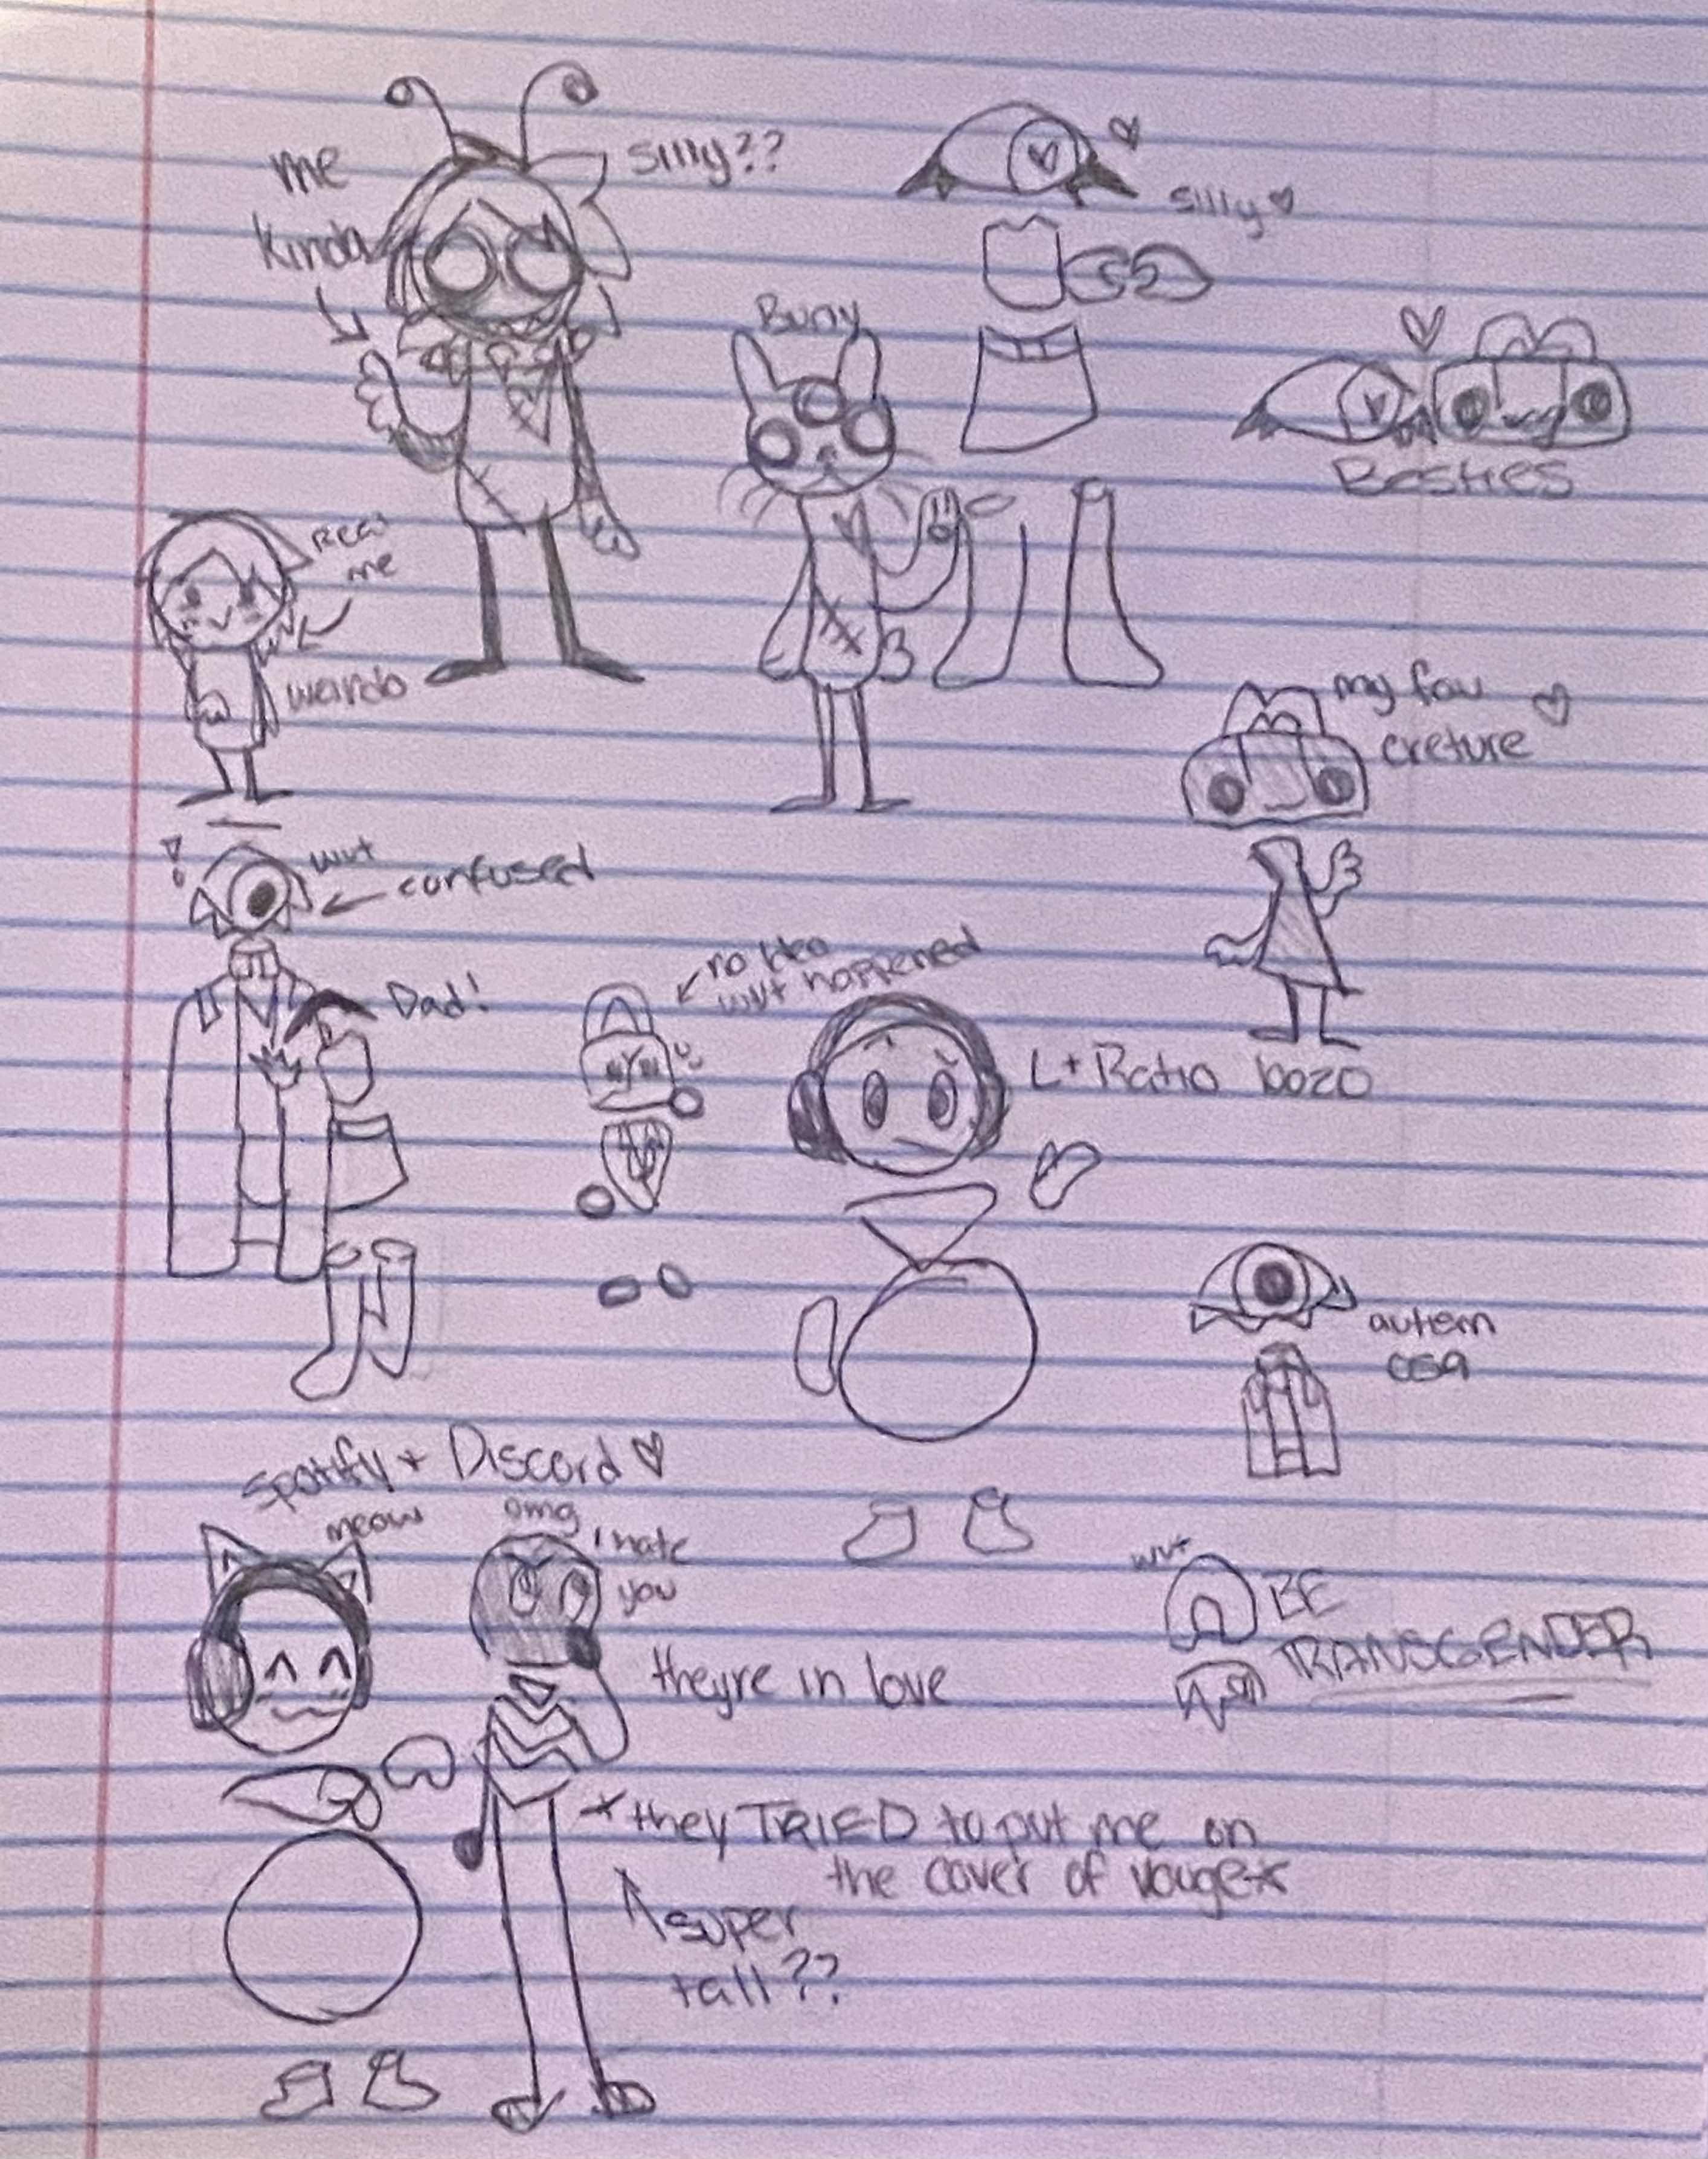 me
Kinda
Silly??
Silly ♡
Buny
Besties
Real
me
weirdo
my fav
creture ♡
wut
confused
Dad!
no idea
wut happened
L + Ratio bozo
autism
Spotify + Discord ♡
meow
omg
I hate
you
theyre in love
wut
BE
TRANSGENDER
*they TRIED to put me on
the cover of vouge*
super
tall??